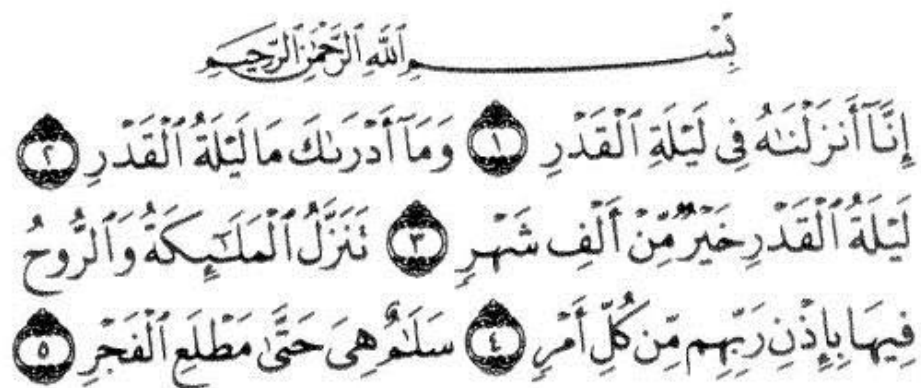 بِسْمِ ٱللَّهِ ٱلرَّحْمَٰنِ ٱلرَّحِيمِ
إِنَّآ أَنزَلْنَٰهُ فِى لَيْلَةِ ٱلْقَدْرِ ١ وَمَآ أَدْرَىٰكَ مَا لَيْلَةُ ٱلْقَدْرِ ٢
لَيْلَةُ ٱلْقَدْرِ خَيْرٌ مِّنْ أَلْفِ شَهْرٍ ٣ تَنَزَّلُ ٱلْمَلَٰٓئِكَةُ وَٱلرُّوحُ
فِيهَا بِإِذْنِ رَبِّهِم مِّن كُلِّ أَمْرٍ ٤ سَلَٰمٌ هِىَ حَتَّىٰ مَطْلَعِ ٱلْفَجْرِ ٥